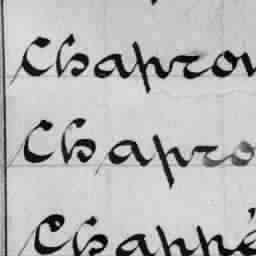 Chapron
Chapro
Chappé